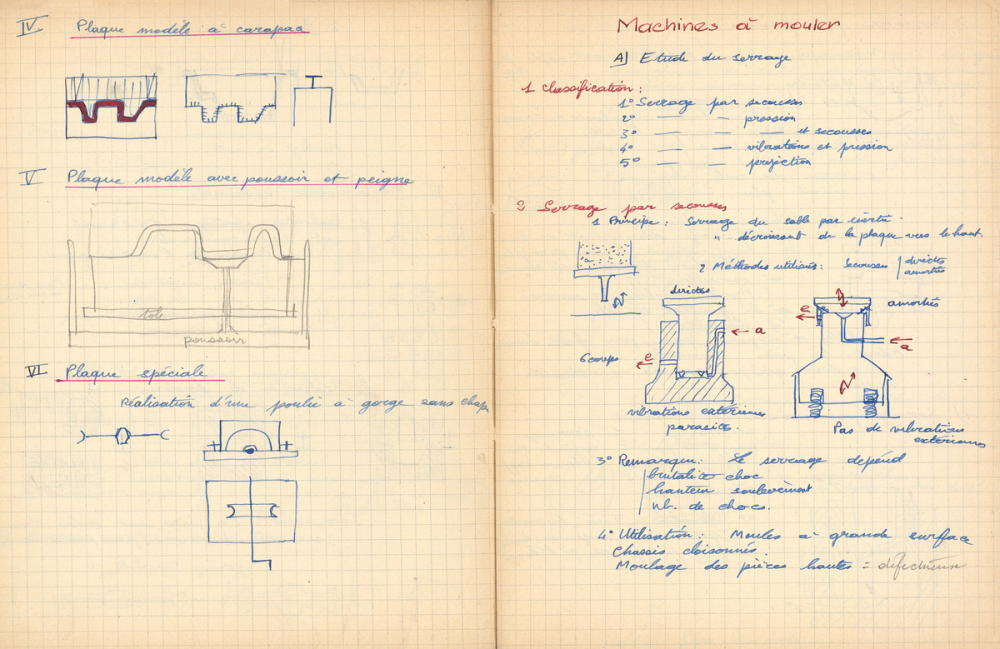 IV Plaque modèle à carapac
V Plaque modèle avec poussoir et peigne
tole
poussoir
VI Plaque spéciale
Réalisation d'une poulie à gorge sans chap
Machines à mouler
A) Etude du serrage
1 Classification :
1° Serrage par secousses
2° — — pression
3° — — — et secousses
4° — — vibrations et pression
5° — — projection
2 Serrage par secousses
1 Principe : Serrage du sable par inertie.
" décroissant de la plaque vers le haut.
2 Méthodes utilisées : Secousses directes
amorties
directes
amorties
e
a
6 coups
e
a
vibrations extérieures
parasites.
Pas de vibrations
extérieures
3° Remarques : Le serrage dépend
brutalité choc
hauteur soulèvement
nb. de chocs.
4° Utilisation : Moules à grande surface
Chassis cloisonnés.
Moulage des pièces hautes = défectueux